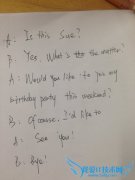 A: Is this Sue?
B: Yes. What's the matter?
A: Would you like to join my
birthday party this weekend?
B: Of course. I'd like to
A: See you!
B: Bye!